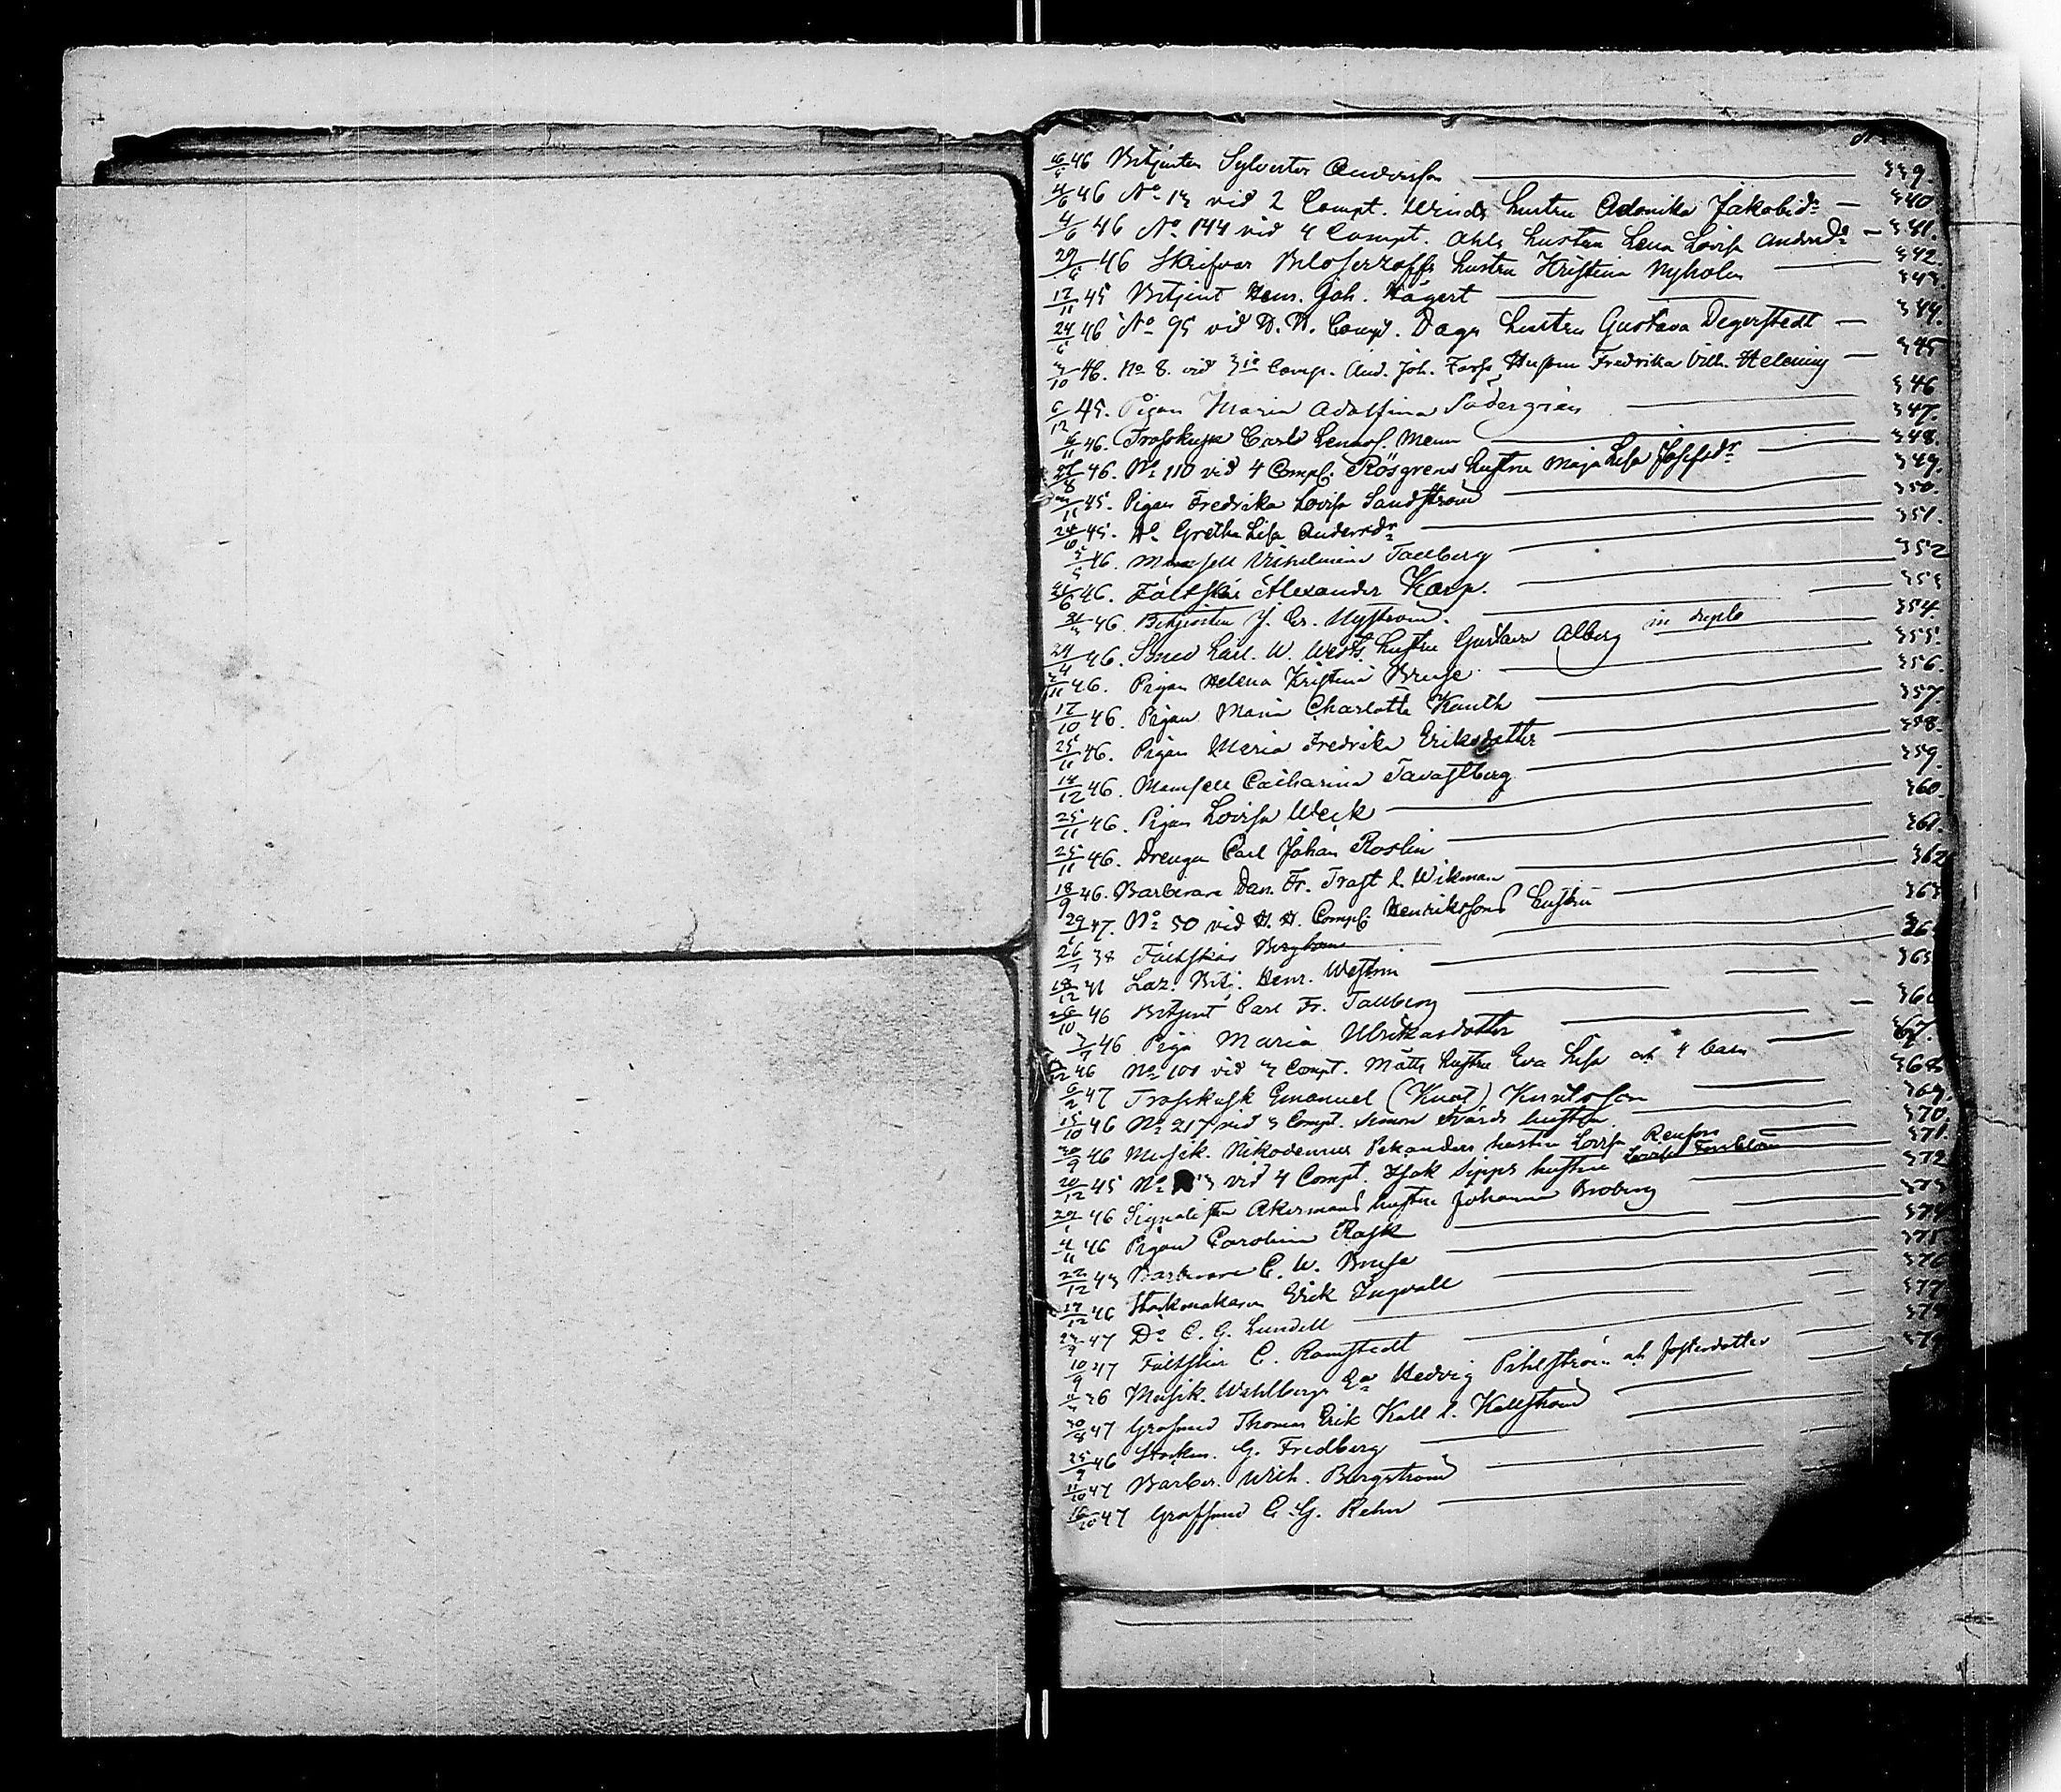 16/5 46 Betjenten Sylvester Andersson 339
4/6 46 No 13 vid 2 Compt. Winds hustru Adonika Jakobsdr 340
4/6 46 No 144 vid 4 Compt. Ahls hustru Lena Lovisa Andersdr 341.
29/5 46 Skrifvar Beloserzoffs hustru Kristina Nyholm 342.
17/11 45 Betjent Henr. Joh. Hägert 343.
24/5 46 No 95 vid D. H. Comp. Dags hustru Gustava Degerstedt 344.
3/10 46. No 8. vid 3ie Comp. And. Joh. Fors Hustru Fredrika Vilh. Helening 345
6/12 45. Pigan Maria Adolfina Södergrén 346
16/11 46. Trosskusk Carl Menn 347.
46. No 110 vid 4 Comp. Rösgrens hustru Maja Lisa Josefsdr 348.
/11 45. Pigan Fredrika Lovisa Sandström 349.
24/6 45. Do Gretha Lisa Andersdr 350.
5/5 46. Mamsell Vilhelmina Tallberg 351.
/6 46. Fältskär Alexander Karp. 352
31/3 46. Betjenten J. Er. Nyström. 353
24/4 46. Smed Carl. W. Wests hustru Gustava Alberg in duplo 354.
3/11 46. Pigan Helena Kristina Bruse 355
17/10 46. Pigan Maria Charlotta Kauth 356.
25/11 46. Pigan Maria Fredrika Eriksdotter 357.
14/12 46. Mamsell Catharina Tavastberg 358.
25/11 46. Pigan Lovisa Weik 359.
25/11 46. Drengen Carl Johan Roslin 360.
18/9 46. Barberare Dan. Fr. Trast l. Wikman 361.
29/1 47. No 50 vid H. H. Comp. Henrikssons hustru 362
26/7 38 Fältskär Bergbom 363
18/12 41 Laz. Betj. Henr. Westrin 364
26/10 46 Betjent Carl Fr. Tallberg 365
7/7 46 Piga Maria Ulrikasdotter 366
/12 46 No 101 vid 3 Compt. Mätts hustru Eva Lisa och 4 barn 367.
6/2 47 Trosskusk Emanuel (Knut) Knutsson 368
15/10 46 No 217 vid 3 Compt. Simon Svärds hustru 369.
30/9 46 Musik. Nikodemus Pekanders hustru Lovisa Renfors 370.
20/12 45 No 3 vid 4 Compt. Isak Sipps hustru Lovisa 371.
29/1 46 Signalisten Åkermans hustru Johanna Broberg 372
4/11 46 Pigan Carolina Rask 373
22/12 43 Barberare C. W. Bruse 374
17/12 46 Stockmakaren Erik Ingvall 375
23/9 47 Do C. G. Lundell 376
10/9 47 Fältskär C. Ramstedt 377
36 Musik. Wahlbergs Ea Hedvig Pihlström och fosterdotter 378
30/8 47 Grofsmed Thomas Erik Kall l. Kallström 379
25/9 46 Stockm. G. Fredberg
11/10 47 Barber. Wilh. Bergström
16/10 47 Grofsmed C. G. Rehn